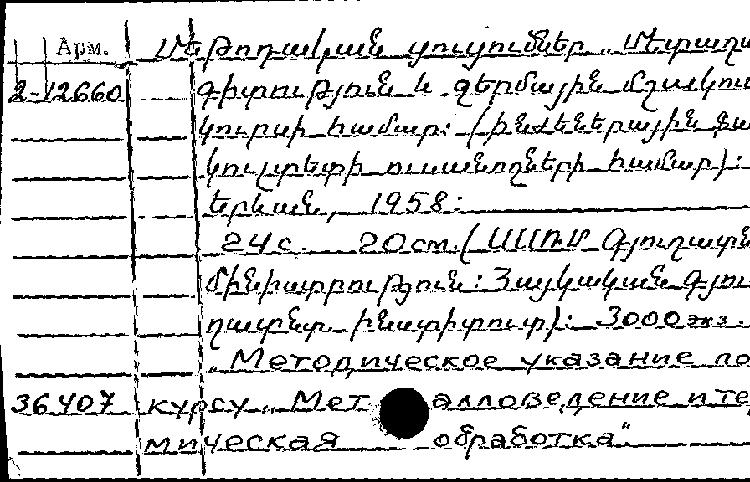 Арм. Մեթոդական ցուցումներ „Մետաղա
2-12660 գիտություն և ջերմային մշակու
կուրսի համար: (ինժեներային ֆա
կուլտետի ուսանողների համար):
Երևան, 1958:
24с. 20см. (ՍՍՌՄ Գյուղատն
մինիստրություն: Հայկական գյու
ղատնտ. ինստիտուտ): 3000экз.
„Методическое указание по
36407 курсу „Металловедение и тер
мическая обработка“